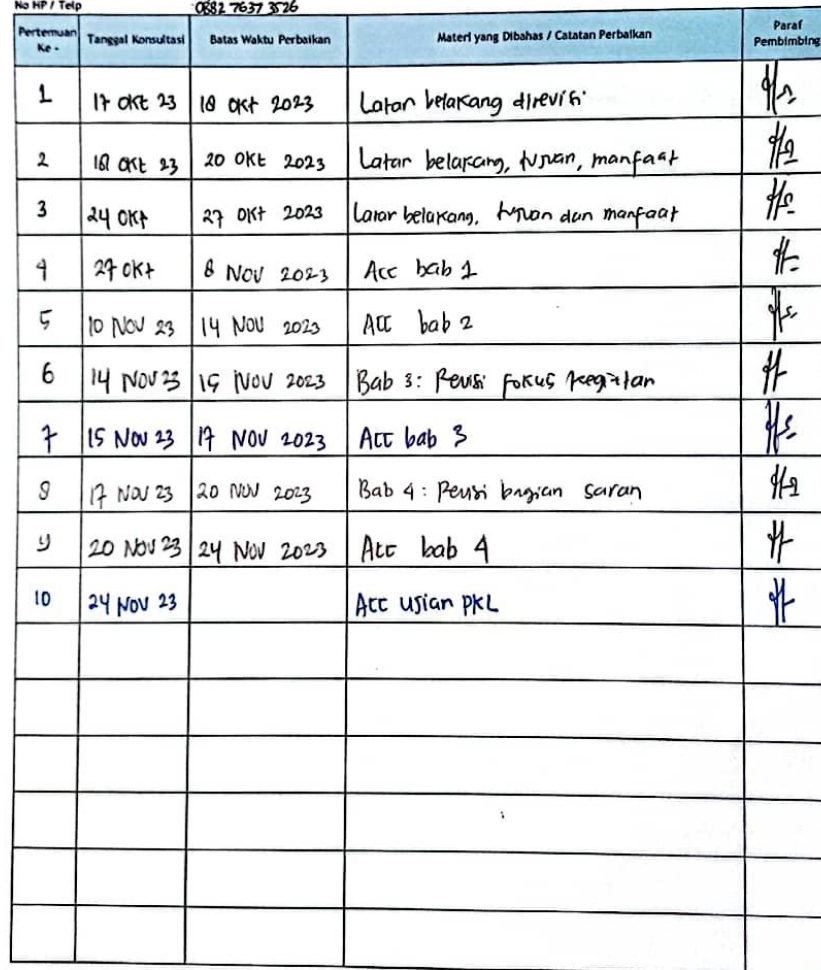 No HP / Telp : 0882 7637 3526
Pertemuan Ke - Tanggal Konsultasi Batas Waktu Perbaikan Materi yang Dibahas / Catatan Perbaikan Paraf Pembimbing
1 17 Okt 23 18 Okt 2023 Latar belakang direvisi
2 18 Okt 23 20 Okt 2023 Latar belakang, tujuan, manfaat
3 24 Okt 27 Okt 2023 Latar belakang, tujuan dan manfaat
4 27 Okt 8 Nov 2023 Acc bab 1
5 10 Nov 23 14 Nov 2023 Acc bab 2
6 14 Nov 23 15 Nov 2023 Bab 3: Revisi fokus kegiatan
7 15 Nov 23 17 Nov 2023 Acc bab 3
8 17 Nov 23 20 Nov 2023 Bab 4: Revisi bagian saran
9 20 Nov 23 24 Nov 2023 Acc bab 4
10 24 Nov 23 Acc Ujian PKL